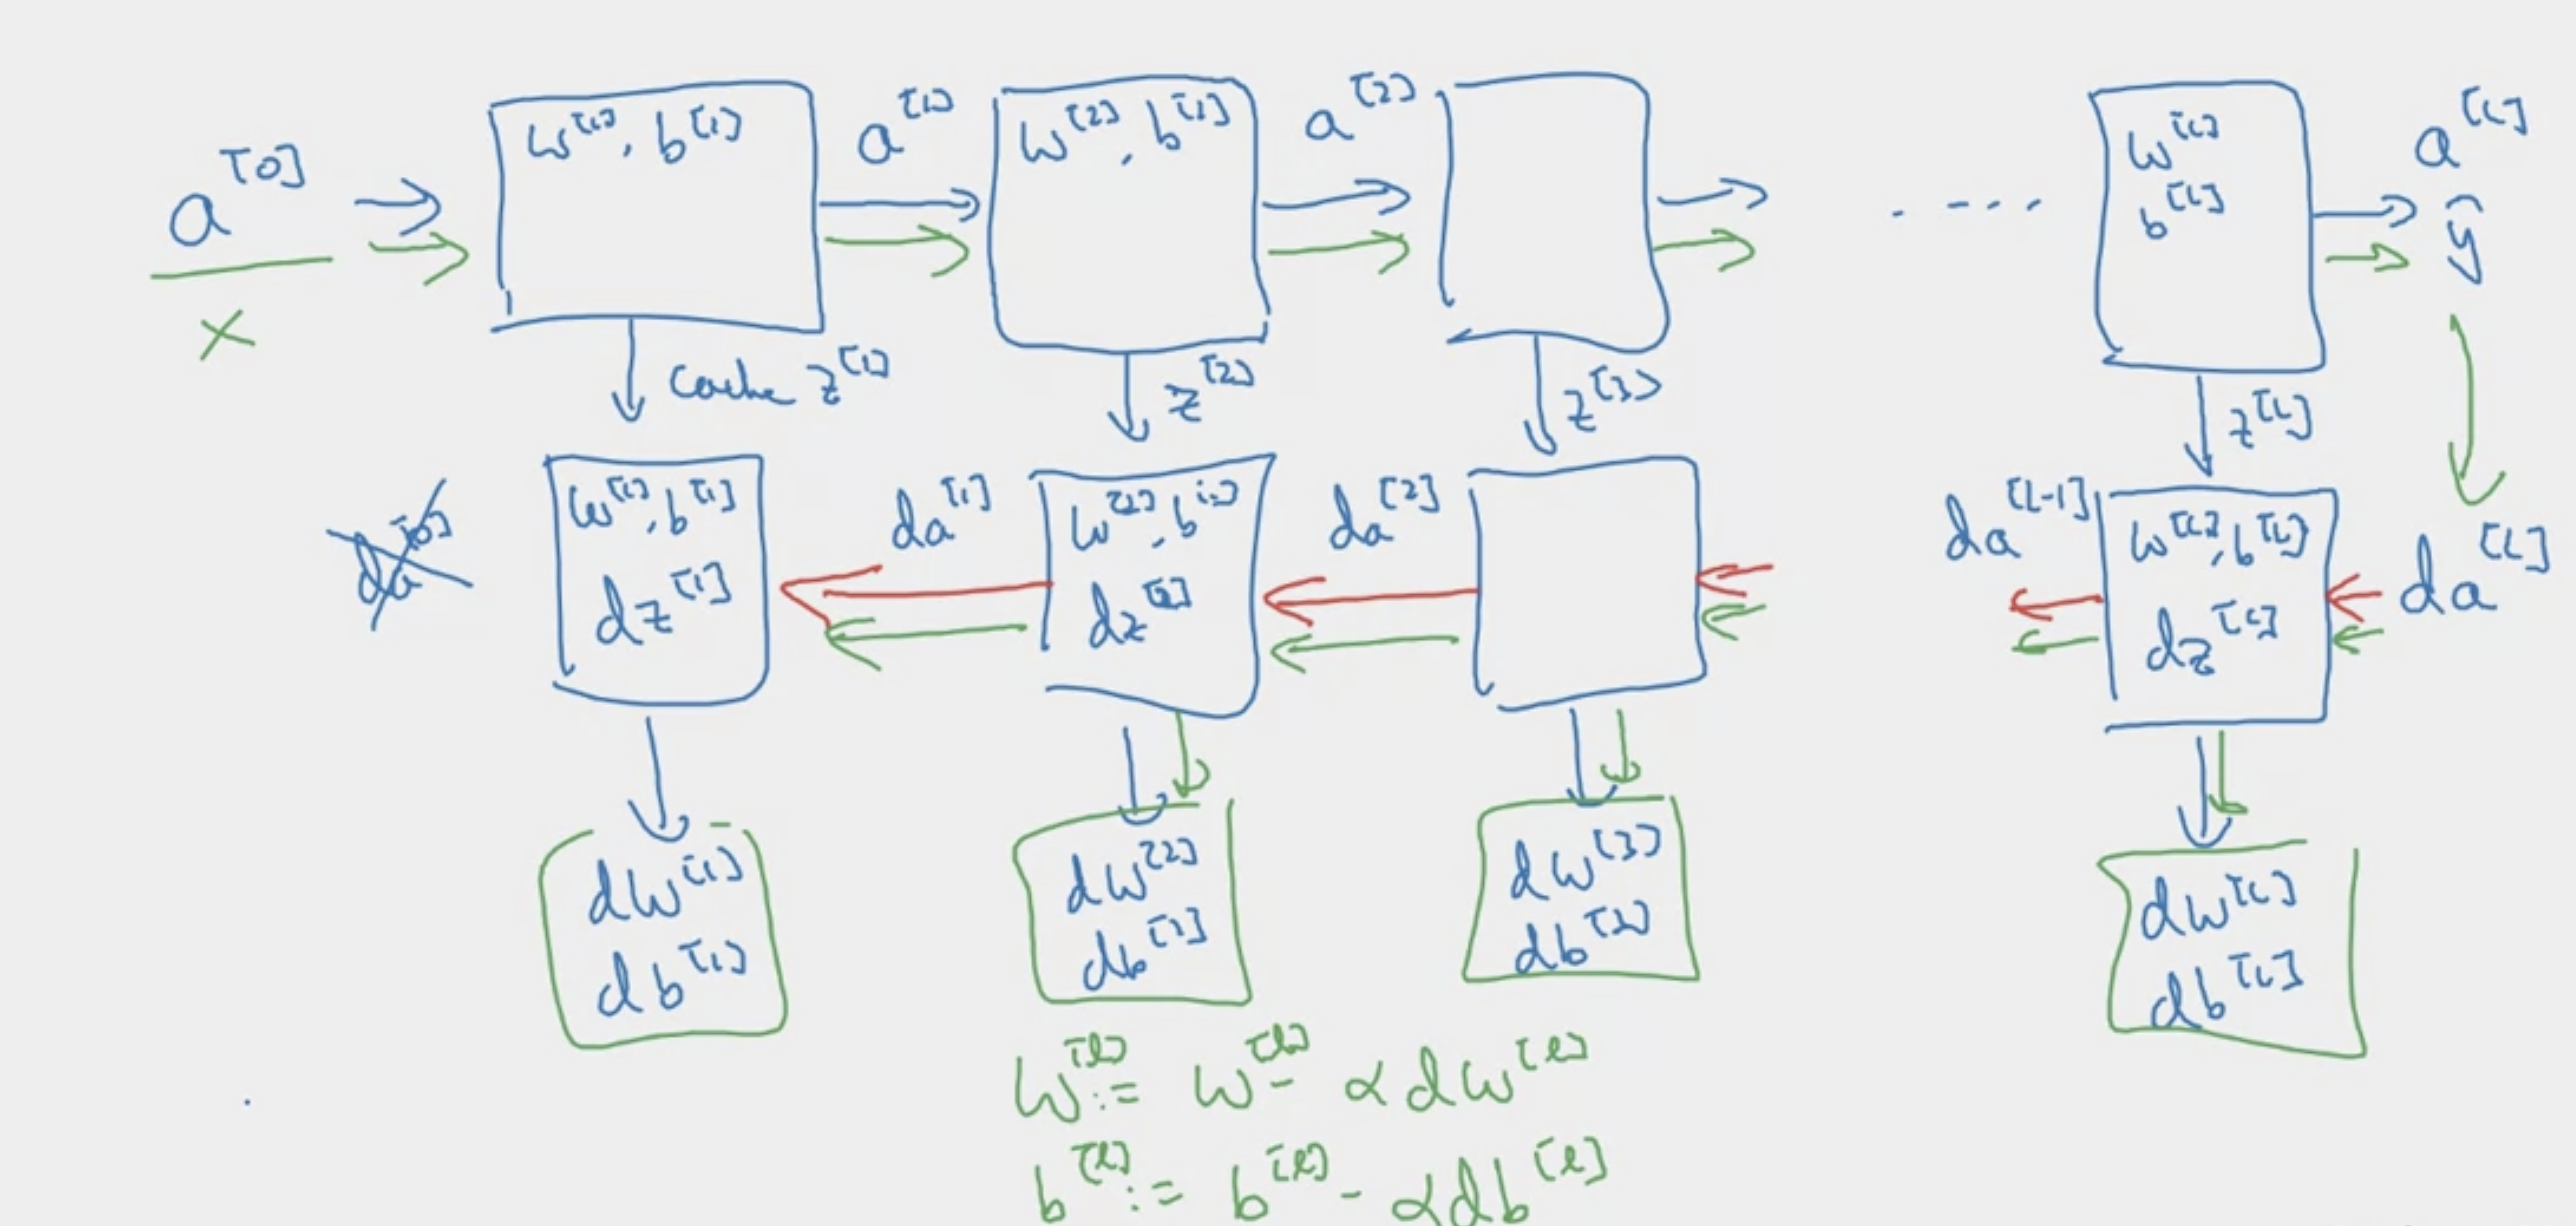 a^[0]
x
w^[1], b^[1]
a^[1]
w^[2], b^[2]
a^[2]
....
w^[L]
b^[L]
a^[L]
ŷ
cache z^[1]
z^[2]
z^[3]
z^[L]
da^[0]
w^[1], b^[1]
dz^[1]
da^[1]
w^[2], b^[2]
dz^[2]
da^[2]
da^[L-1]
w^[L], b^[L]
dz^[L]
da^[L]
dw^[1]
db^[1]
dw^[2]
db^[2]
dw^[3]
db^[3]
dw^[L]
db^[L]
w^[l] := w^[l] - αdw^[l]
b^[l] := b^[l] - αdb^[l]